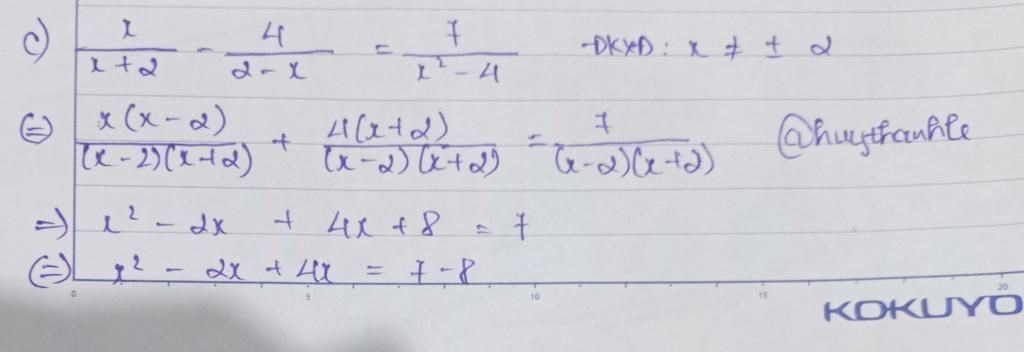 c) x/(x+2) - 4/(2-x) = 7/(x²-4) ĐKXĐ: x ≠ ± 2
⇔ x(x-2)/((x-2)(x+2)) + 4(x+2)/((x-2)(x+2)) = 7/((x-2)(x+2)) @huythanhle
⇒ x² - 2x + 4x + 8 = 7
⇔ x² - 2x + 4x = 7 - 8
0 5 10 15 20
KOKUYO